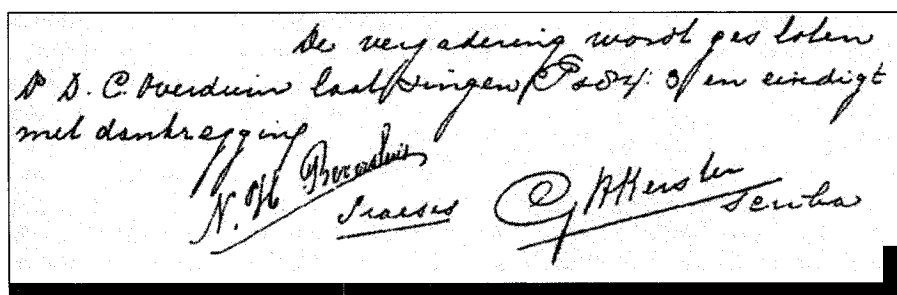 De vergadering wordt gesloten
Ds D. C. Overduin laat zingen Ps 84: 3 en eindigt
met dankzegging
N. H. Beversluis
Praeses
G H Kersten
Scriba